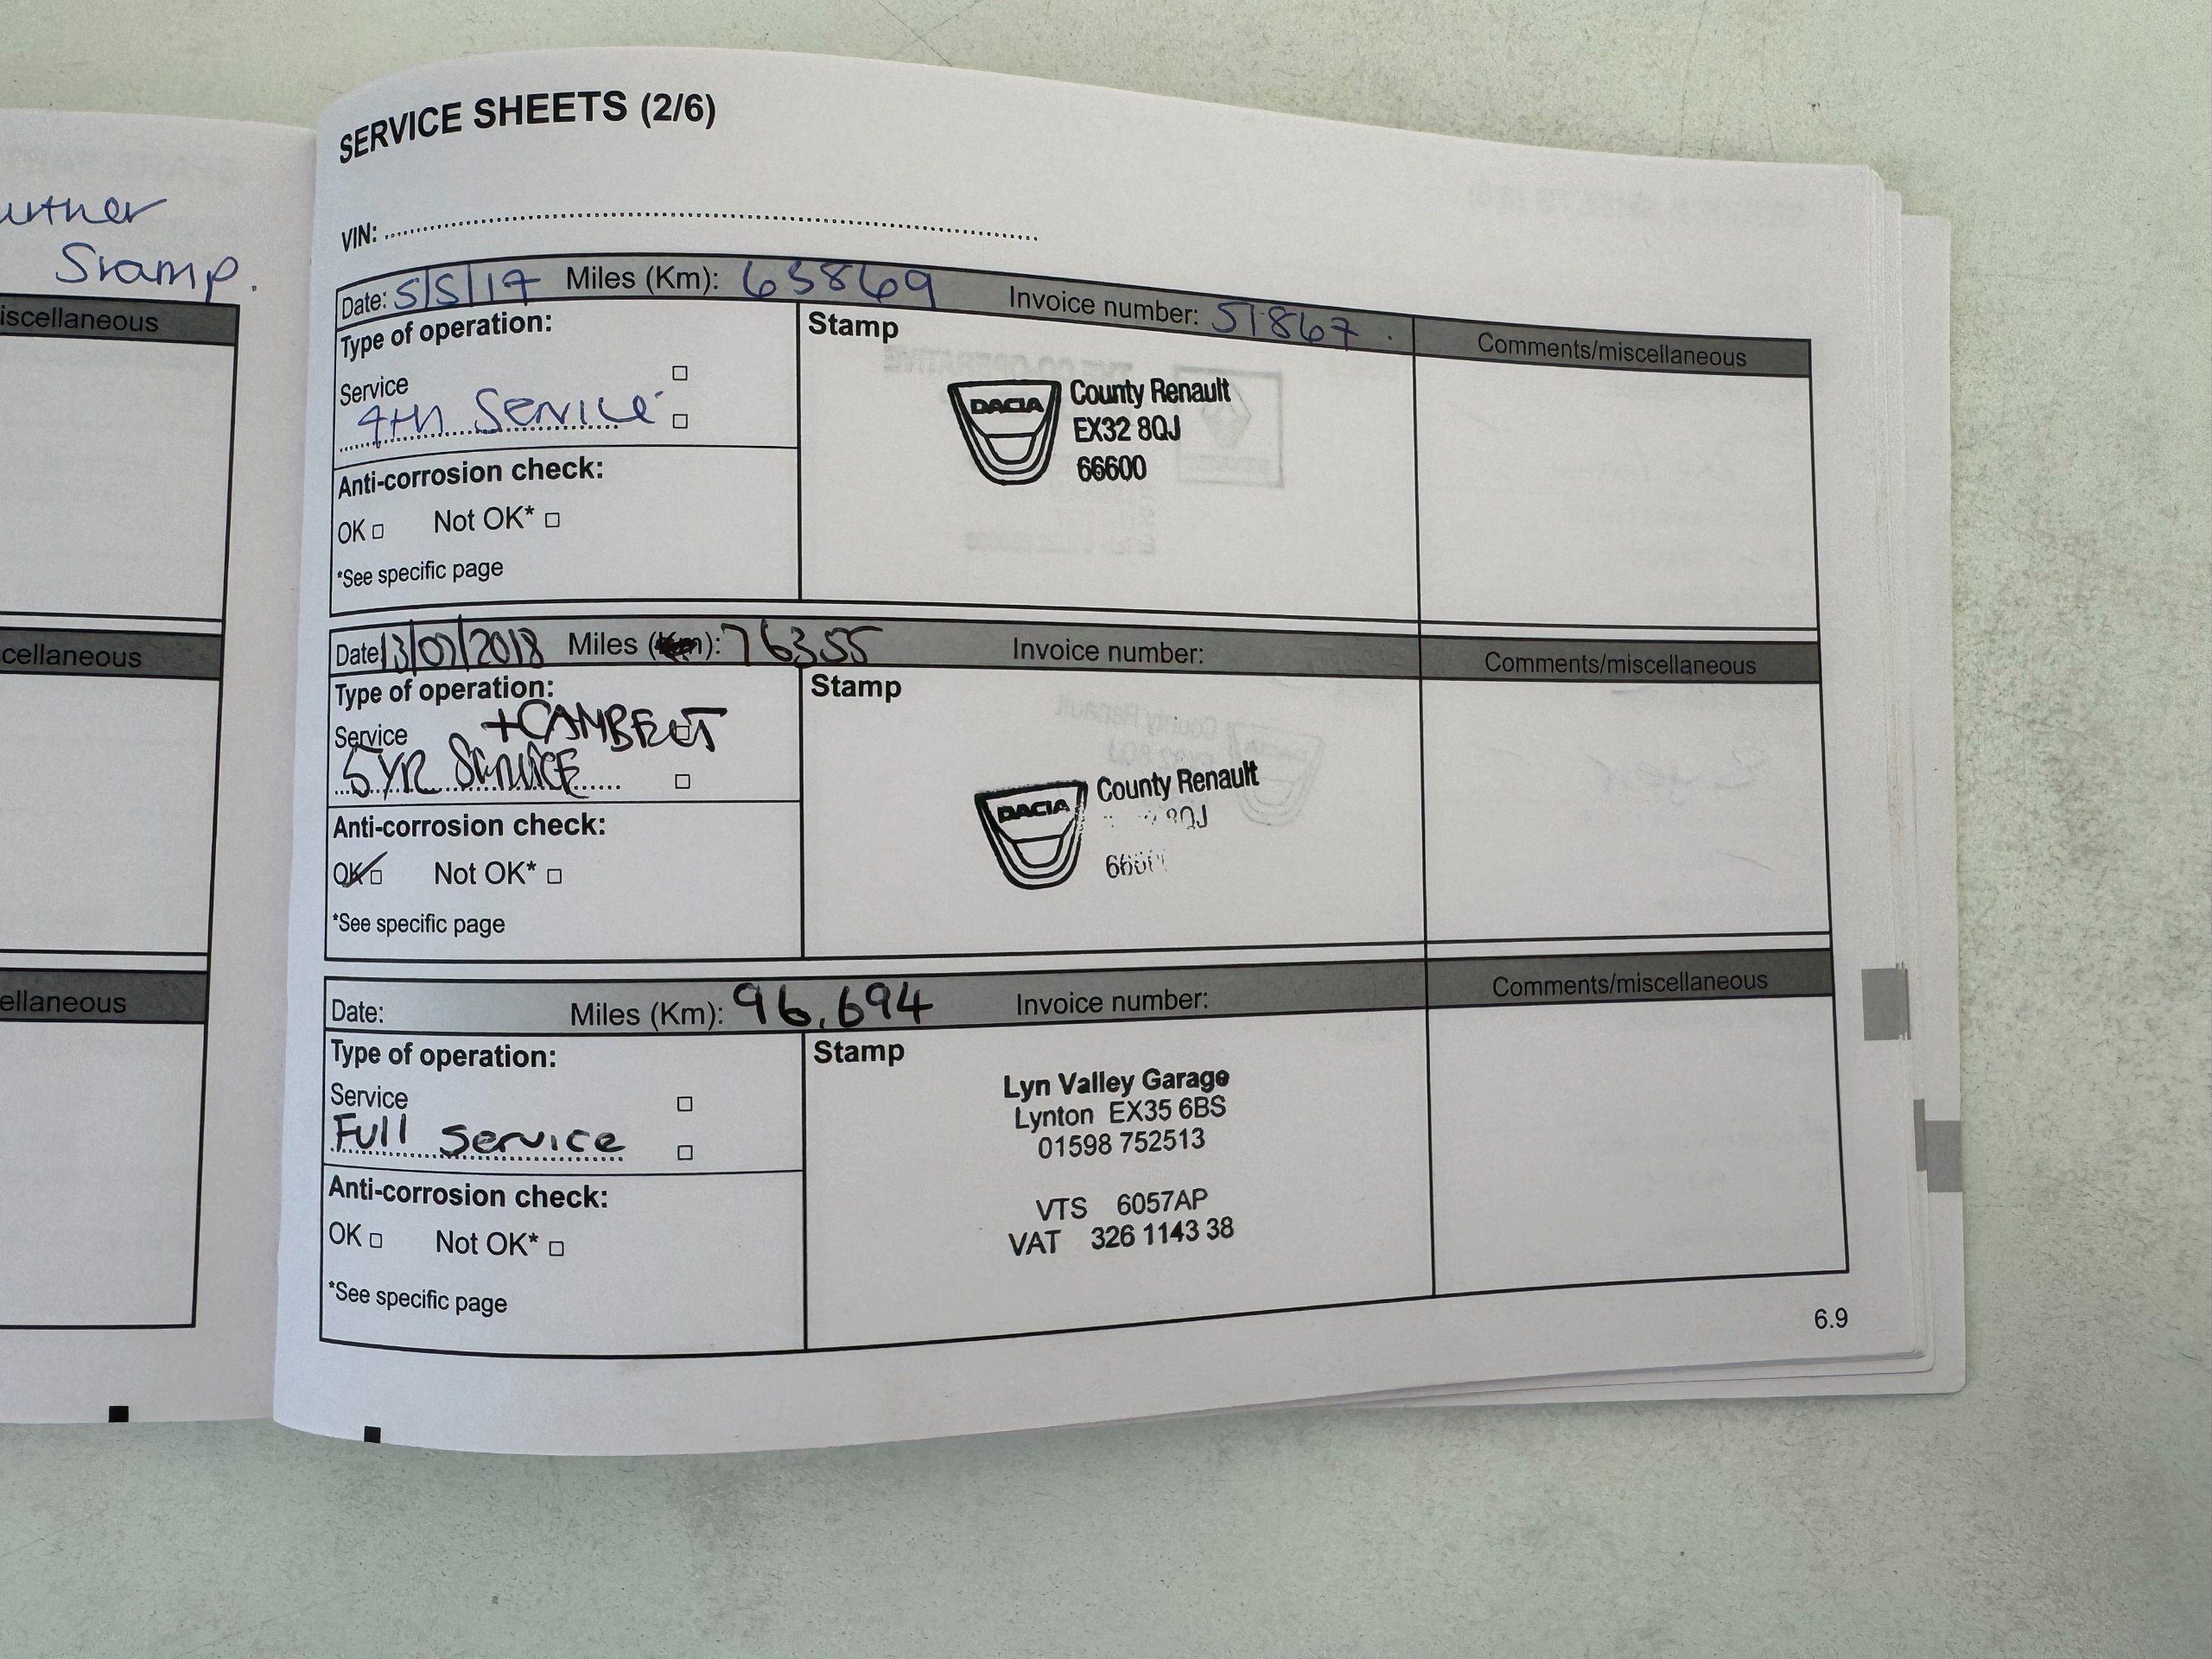 urther
Stamp.
iscellaneous
cellaneous
ellaneous
SERVICE SHEETS (2/6)
VIN:
Date: 5/5/17 Miles (Km): 63869 Invoice number: 51867. Comments/miscellaneous
Type of operation:
Service
4th Service
Stamp
DACIA
County Renault
EX32 8QJ
66600
Anti-corrosion check:
OK Not OK*
*See specific page
Date: 13/07/2018 Miles (Km): 76355 Invoice number: Comments/miscellaneous
Type of operation:
Service +CAMBELT
5YR SERVICE
Stamp
DACIA
County Renault
8QJ
6660
Anti-corrosion check:
OK Not OK*
*See specific page
Date: Miles (Km): 96,694 Invoice number: Comments/miscellaneous
Type of operation:
Service
Full service
Stamp
Lyn Valley Garage
Lynton EX35 6BS
01598 752513
VTS 6057AP
VAT 326 1143 38
Anti-corrosion check:
OK Not OK*
*See specific page
6.9